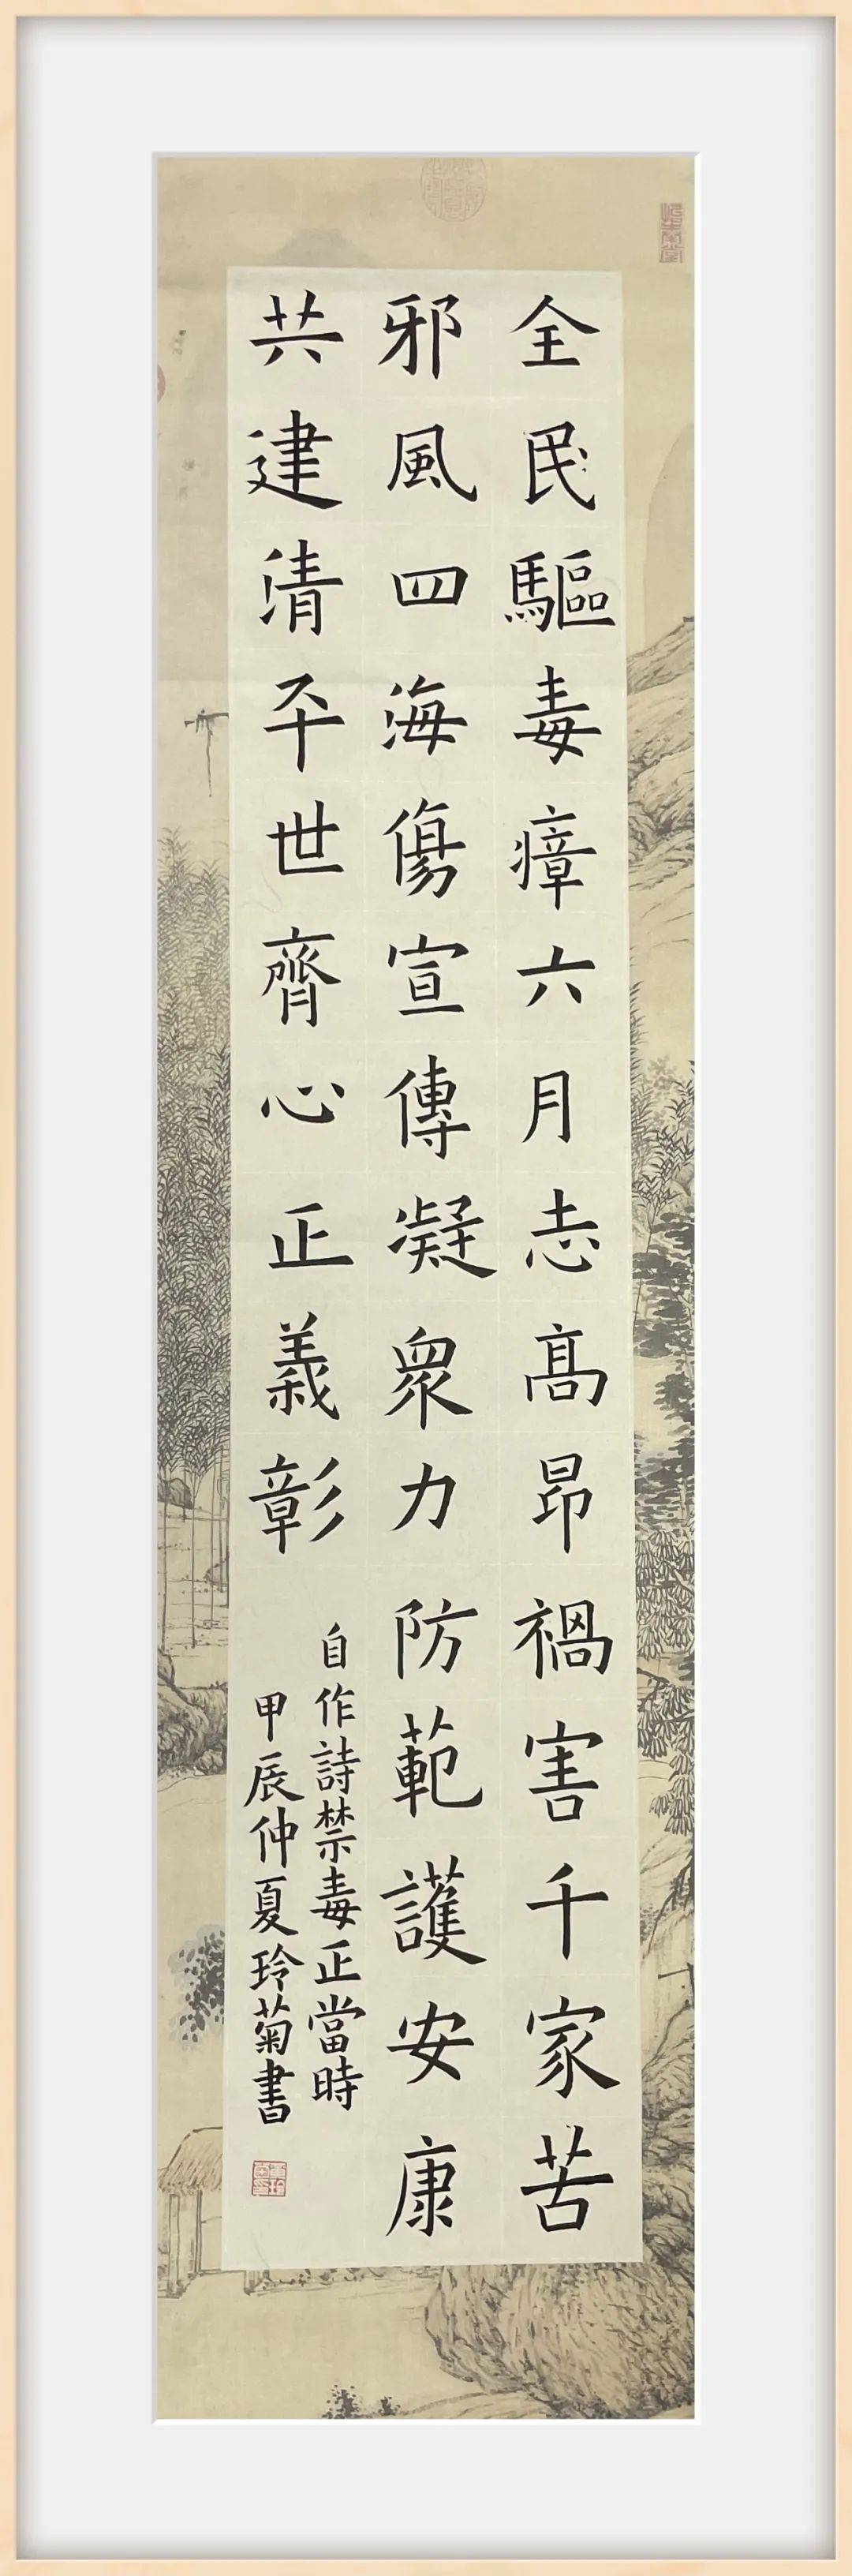 全民驅毒瘴六月志高昂禍害千家苦
邪風四海傷宣傳凝衆力防範護安康
共建清平世齊心正義彰
自作詩禁毒正當時
甲辰仲夏玲菊書